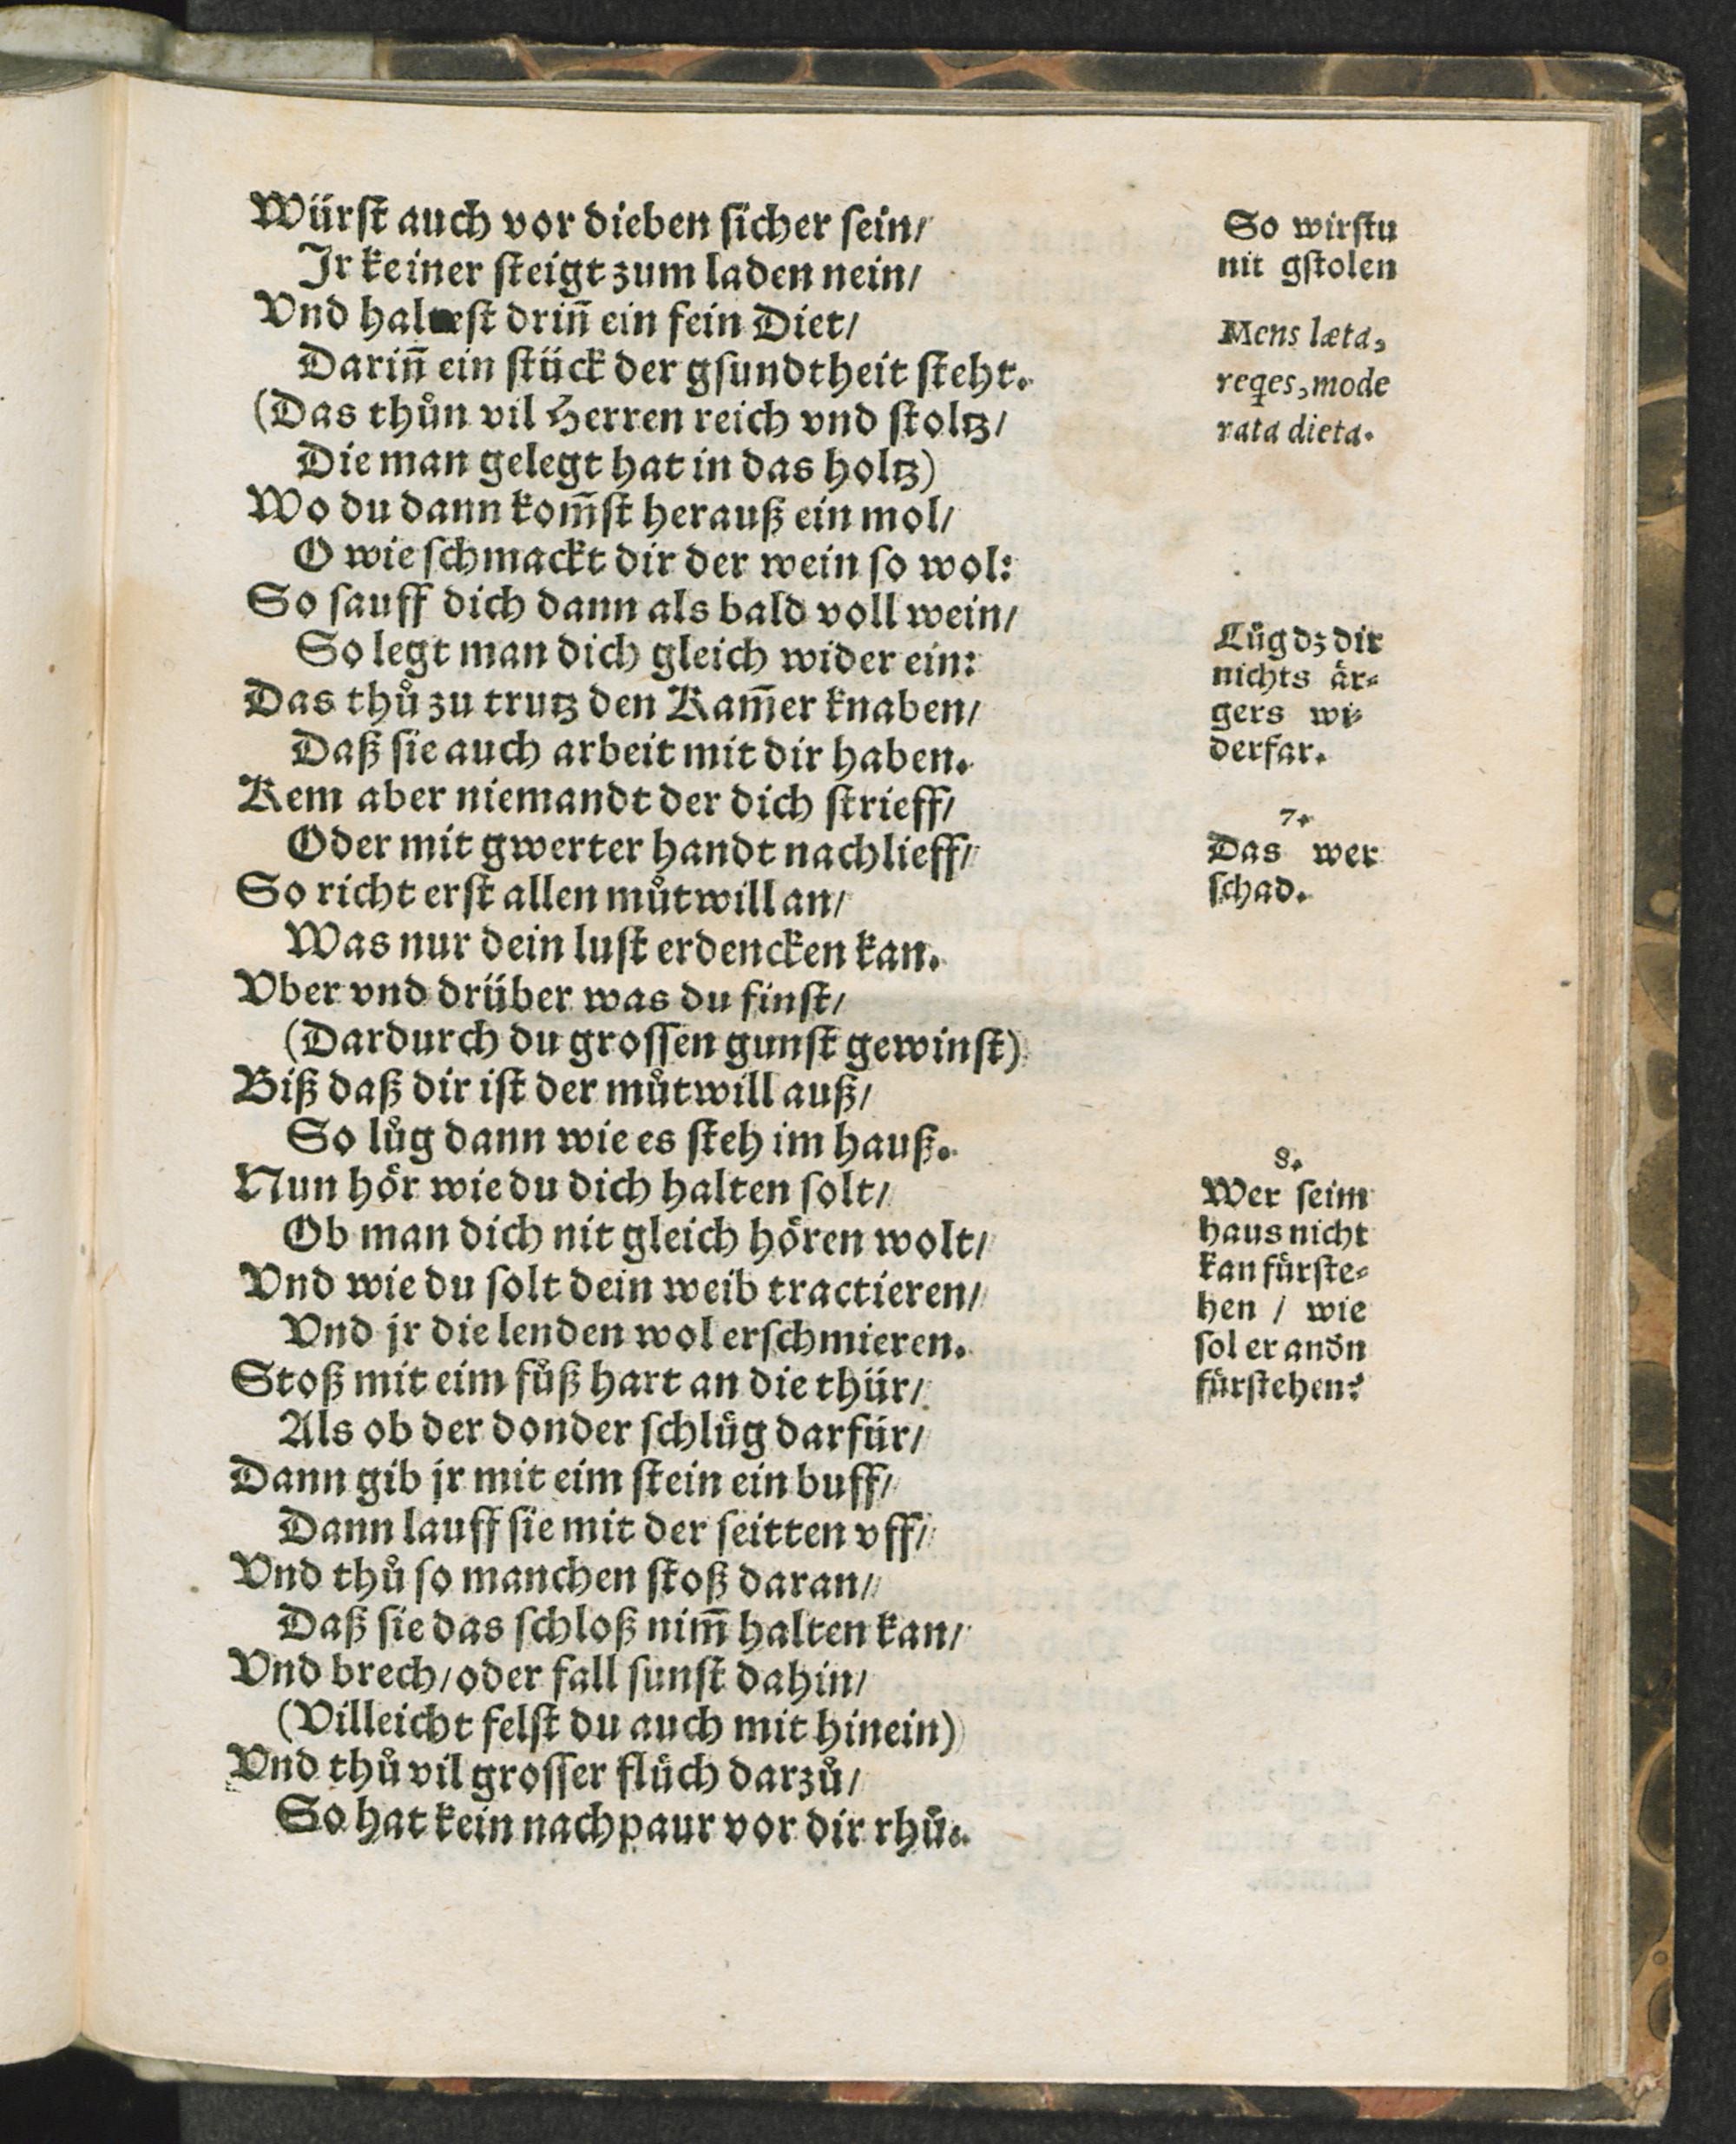 Würst auch vor dieben sicher sein/
Jr keiner steigt zum laden nein/
Vnd haltest driñ ein fein Diet/
Dariñ ein stück der gsundtheit steht.
(Das thůn vil Herren reich vnd stoltz/
Die man gelegt hat in das holtz)
Wo du dann kom̄st herauß ein mol/
O wie schmackt dir der wein so wol:
So sauff dich dann als bald voll wein/
So legt man dich gleich wider ein:
Das thů zu trutz den Kam̄er knaben/
Daß sie auch arbeit mit dir haben.
Kem aber niemandt der dich strieff/
Oder mit gwerter handt nachlieff/
So richt erst allen můtwill an/
Was nur dein lust erdencken kan.
Vber vnd drüber was du finst/
(Dardurch du grossen gunst gewinst)
Biß daß dir ist der můtwill auß/
So lůg dann wie es steh im hauß.
Nun hör wie du dich halten solt/
Ob man dich nit gleich hören wolt/
Vnd wie du solt dein weib tractieren/
Vnd jr die lenden wol erschmieren.
Stoß mit eim fůß hart an die thür/
Als ob der donder schlůg darfür/
Dann gib jr mit eim stein ein buff/
Dann lauff sie mit der seitten vff/
Vnd thů so manchen stoß daran/
Daß sie das schloß nim̄ halten kan/
Vnd brech/oder fall sunst dahin/
(Villeicht felst du auch mit hinein)
Vnd thů vil grosser flüch darzů/
So hat kein nachpaur vor dir rhů.
So wirstu
nit gstolen
Mens læta,
reqes, mode
rata dieta.
Lůg dz dir
nichts är=
gers wi=
derfar.
7.
Das wer
schad.
8.
Wer seim
haus nicht
kan fürste=
hen / wie
sol er andn
fürstehen?